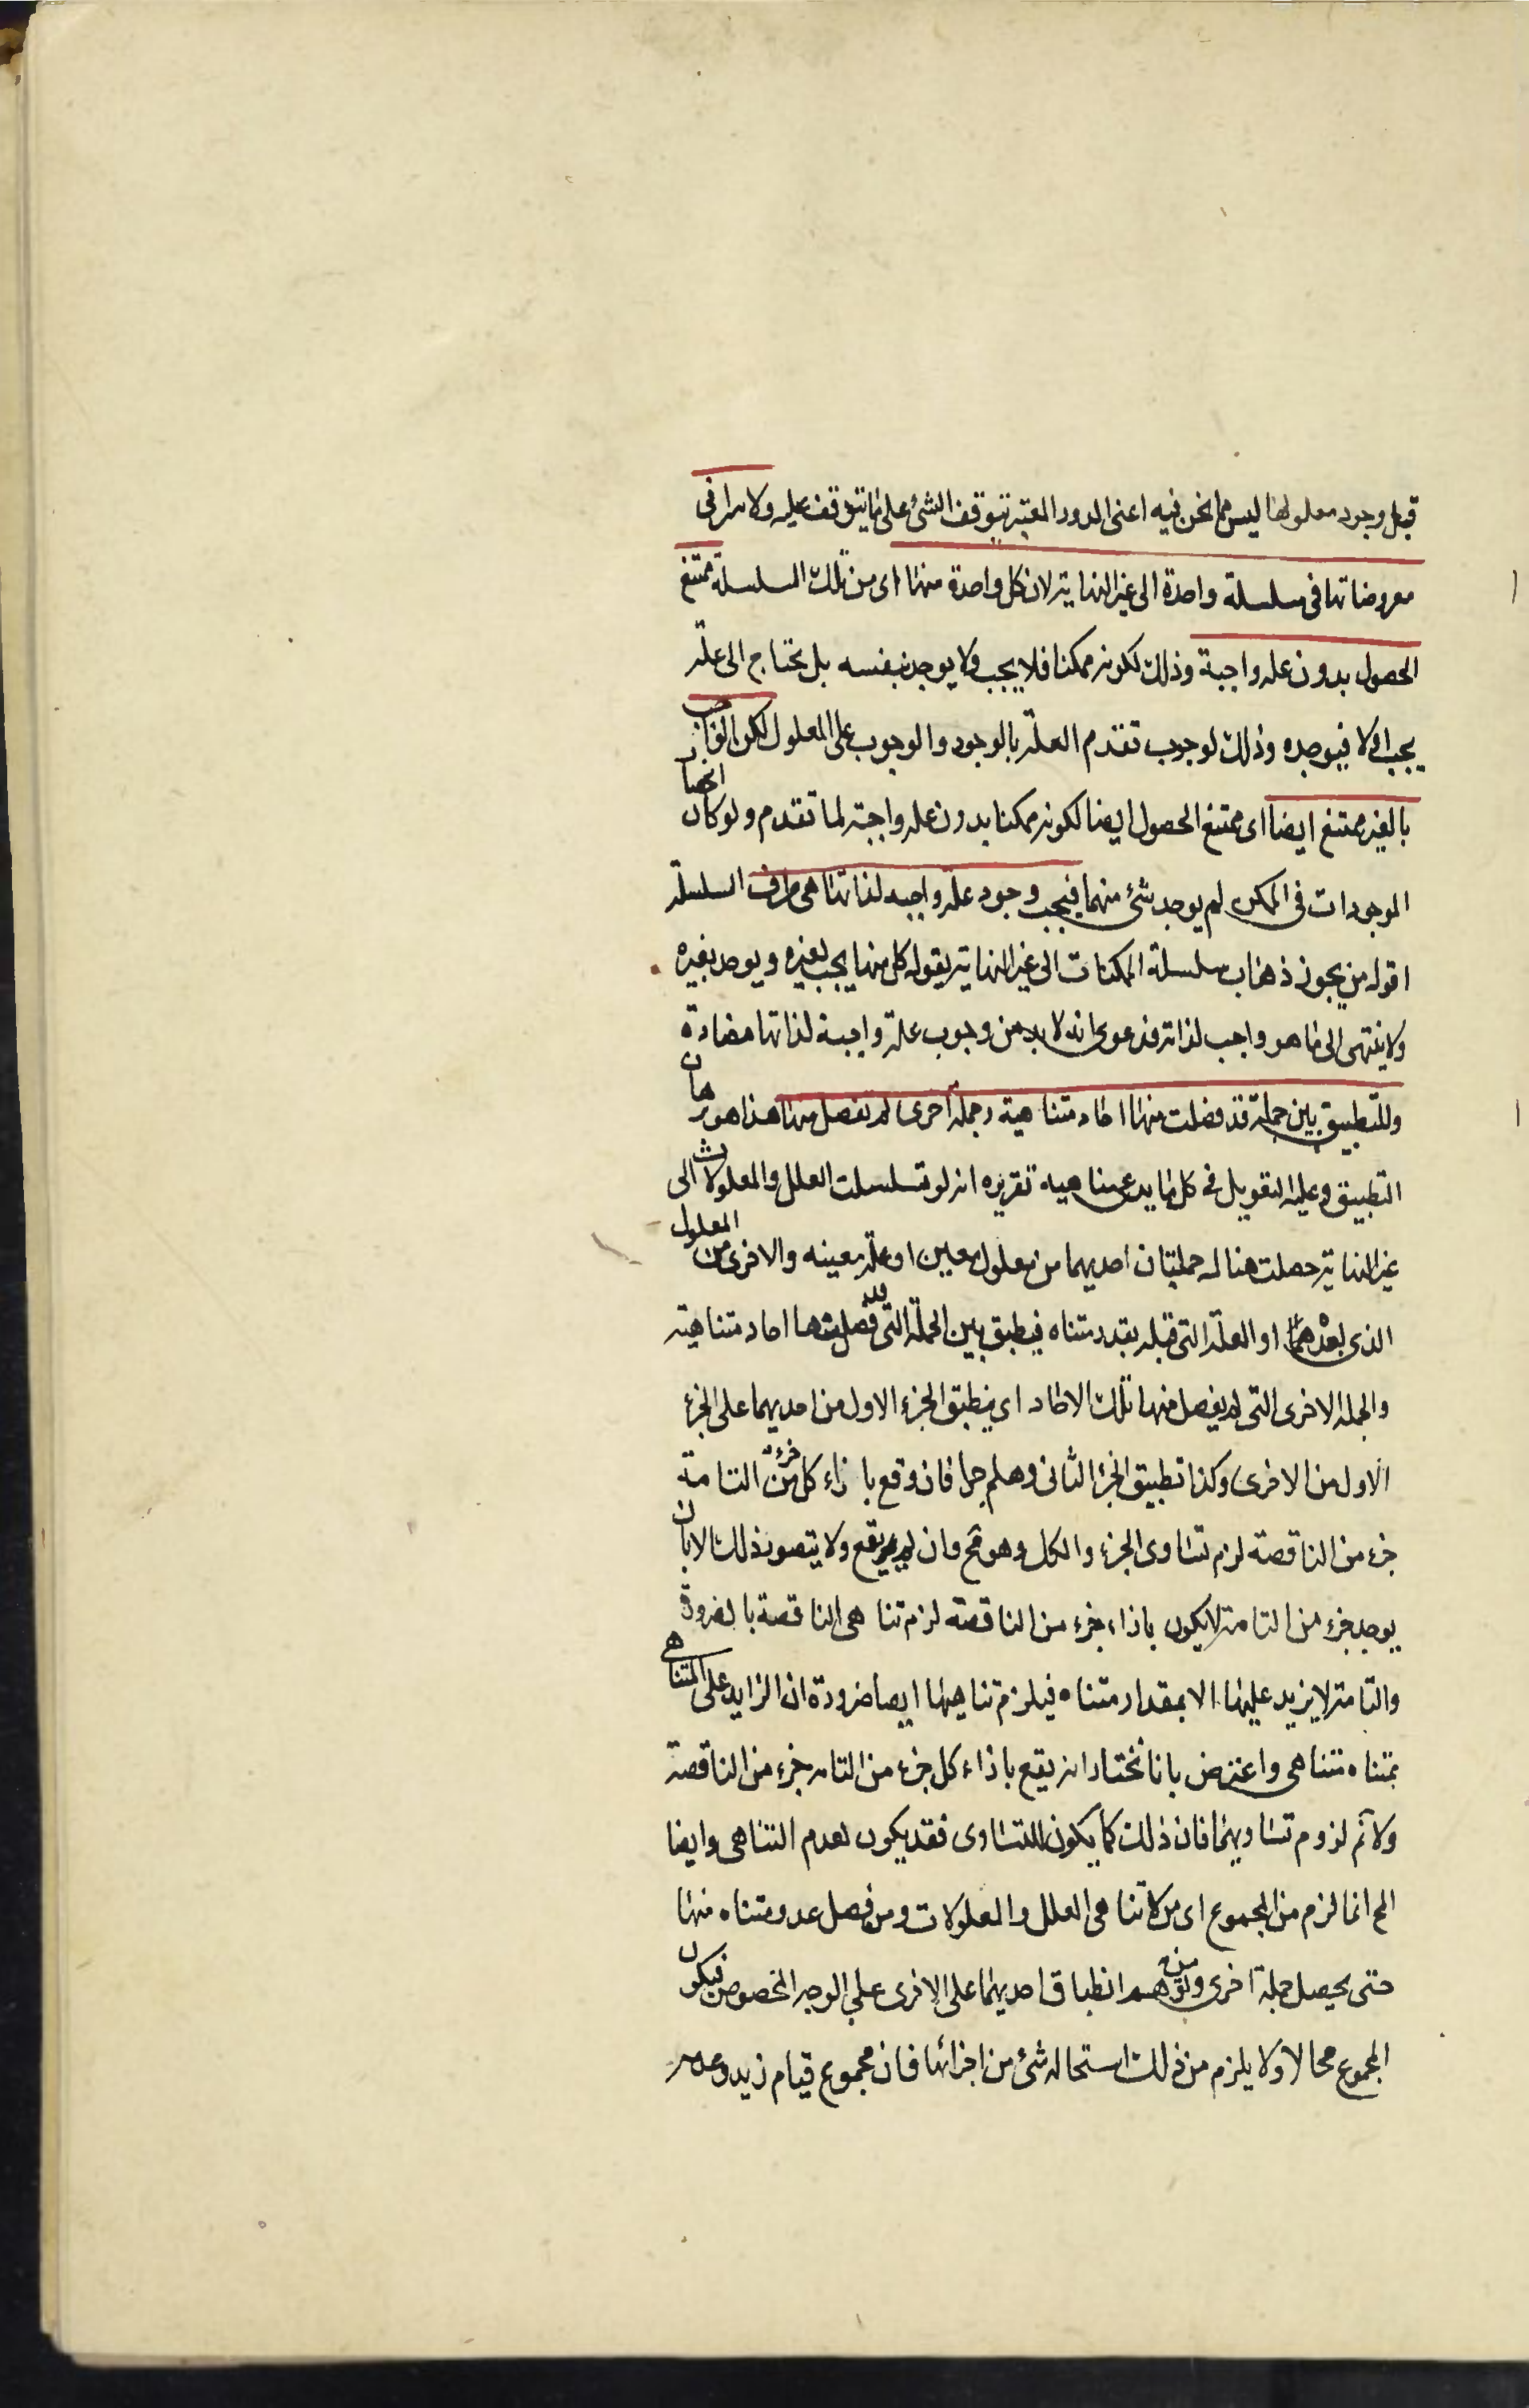 قبل وجود معلولها ليس مما نحن فيه اعنى الدور المعتبر بتوقف الشئ على ما يتوقف عليه ولا يترا فى
معروضاتها فى سلسلة واحدة الى غير النهاية لان كل واحدة منها اى من تلك السلسلة ممتنع
الحصول بدون علة واجبة وذلك لكونه ممكنا فلا يجب ولا يوجد بنفسه بل يحتاج الى علة
يجب اولا فيوجده وذلك لوجوب تقدم العلة بالوجود والوجوب على المعلول لكن الواجب
بالغير ممتنع ايضا اى ممتنع الحصول ايضا لكونه ممكنا بدون علة واجبة لما تقدم ولو كان انحصار
الموجودات فى الممكن لم يوجد شئ منهما فيجب وجود علة واجبه لذاتها هى طرف السلسلة
اقول من يجوز ذهاب سلسلة الممكنات الى غير النهاية يقول كل منها يجب بغيره ويوجد بغيره
ولا ينتهى الى ما هو واجب لذاته فدعوى انه لابد من وجوب علة واجبة لذاتها مصادرة
وللتطبيق بين جملة قد فصلت منها احاد متناهية وجملة اخرى لم تفصل منها هذا هو برهان
التطبيق وعليه التعويل فى كل ما يدعى تناهيه تقريره انه لو تسلسلت العلل والمعلولات الى
غير النهاية حصلت هناك جملتان احديهما من معلول معين او علة معينه والاخرى من المعلول
الذى بعدهما او العلة التى قبله بقدر متناه فيطبق بين الجملة التى قد فصلت منها احاد متناهية
والجملة الاخرى التى لم يفصل منها تلك الاحاد اى ينطبق الجزء الاول من احديهما على الجزء
الاول من الاخرى وكذا تطبيق الجزء الثانى وهلم جرا فان وقع بازاء كل جزء من التامة
جزء من الناقصة لزم تساوى الجزء والكل وهو مح وان لم يقع ولا يتصور ذلك الا بان
يوجد جزء من التامة لا يكون بازاء جزء من الناقصة لزم تناهى الناقصة بالضرورة
والتامة لا يزيد عليها الا بمقدار متناه فيلزم تناهيها ايضا ضرورة ان الزايد على المتناهى
بمتناه متناهى واعترض بانا نختار انه يقع بازاء كل جزء من التامه جزء من الناقصة
ولا نم لزوم تساويهما فان ذلك كما يكون للتساوى فقد يكون لعدم التناهى وايضا
المح انما لزم من المجموع اى من لا تناهى العلل والمعلولات ومن فصل عدد متناه منها
حتى يحصل جملة اخرى ومن توهم انطباق احديهما على الاخرى على الوجه المخصوص فيكون
المجموع محالا ولا يلزم من ذلك استحالة شئ من اجزائها فان مجموع قيام زيد وعدمه